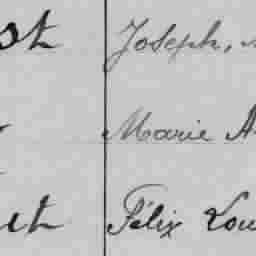 st Joseph,
Marie A
et Félix Lou